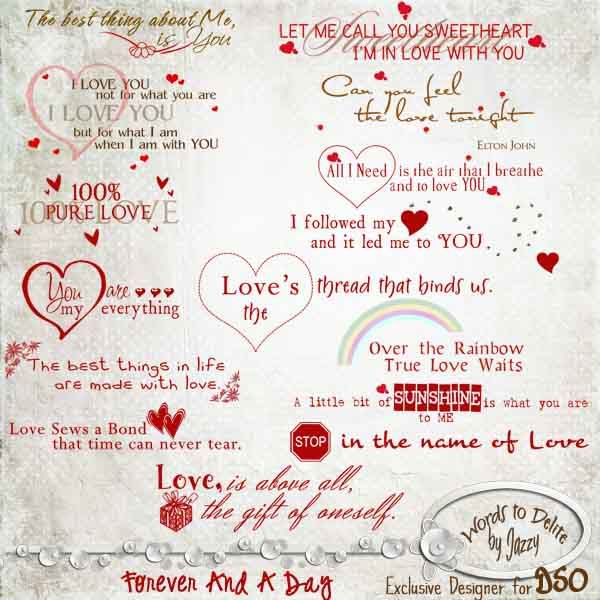 The best thing about Me,
is You
LET ME CALL YOU SWEETHEART
I'M IN LOVE WITH YOU
I LOVE YOU
not for what you are
I LOVE YOU
but for what I am
when I am with YOU
Can you feel
the love tonight
ELTON JOHN
All I Need is the air that I breathe
and to love YOU
100%
PURE LOVE
100% LOVE
I followed my
and it led me to YOU.
You are
my everything
Love's
the
thread that binds us.
Over the Rainbow
True Love Waits
The best things in life
are made with love.
A little bit of SUNSHINE is what you are
to ME
Love Sews a Bond
that time can never tear.
STOP in the name of Love
Love, is above all,
the gift of oneself.
Words to Delite
by Jazzy
Forever And A Day
Exclusive Designer for DSO